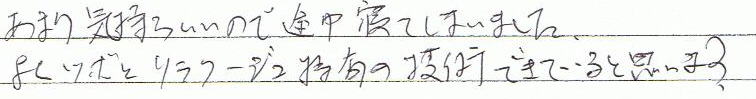 あまり気持ちいいので途中寝てしまいました。
よくツボとリラクージュ特有の技術できていると思います